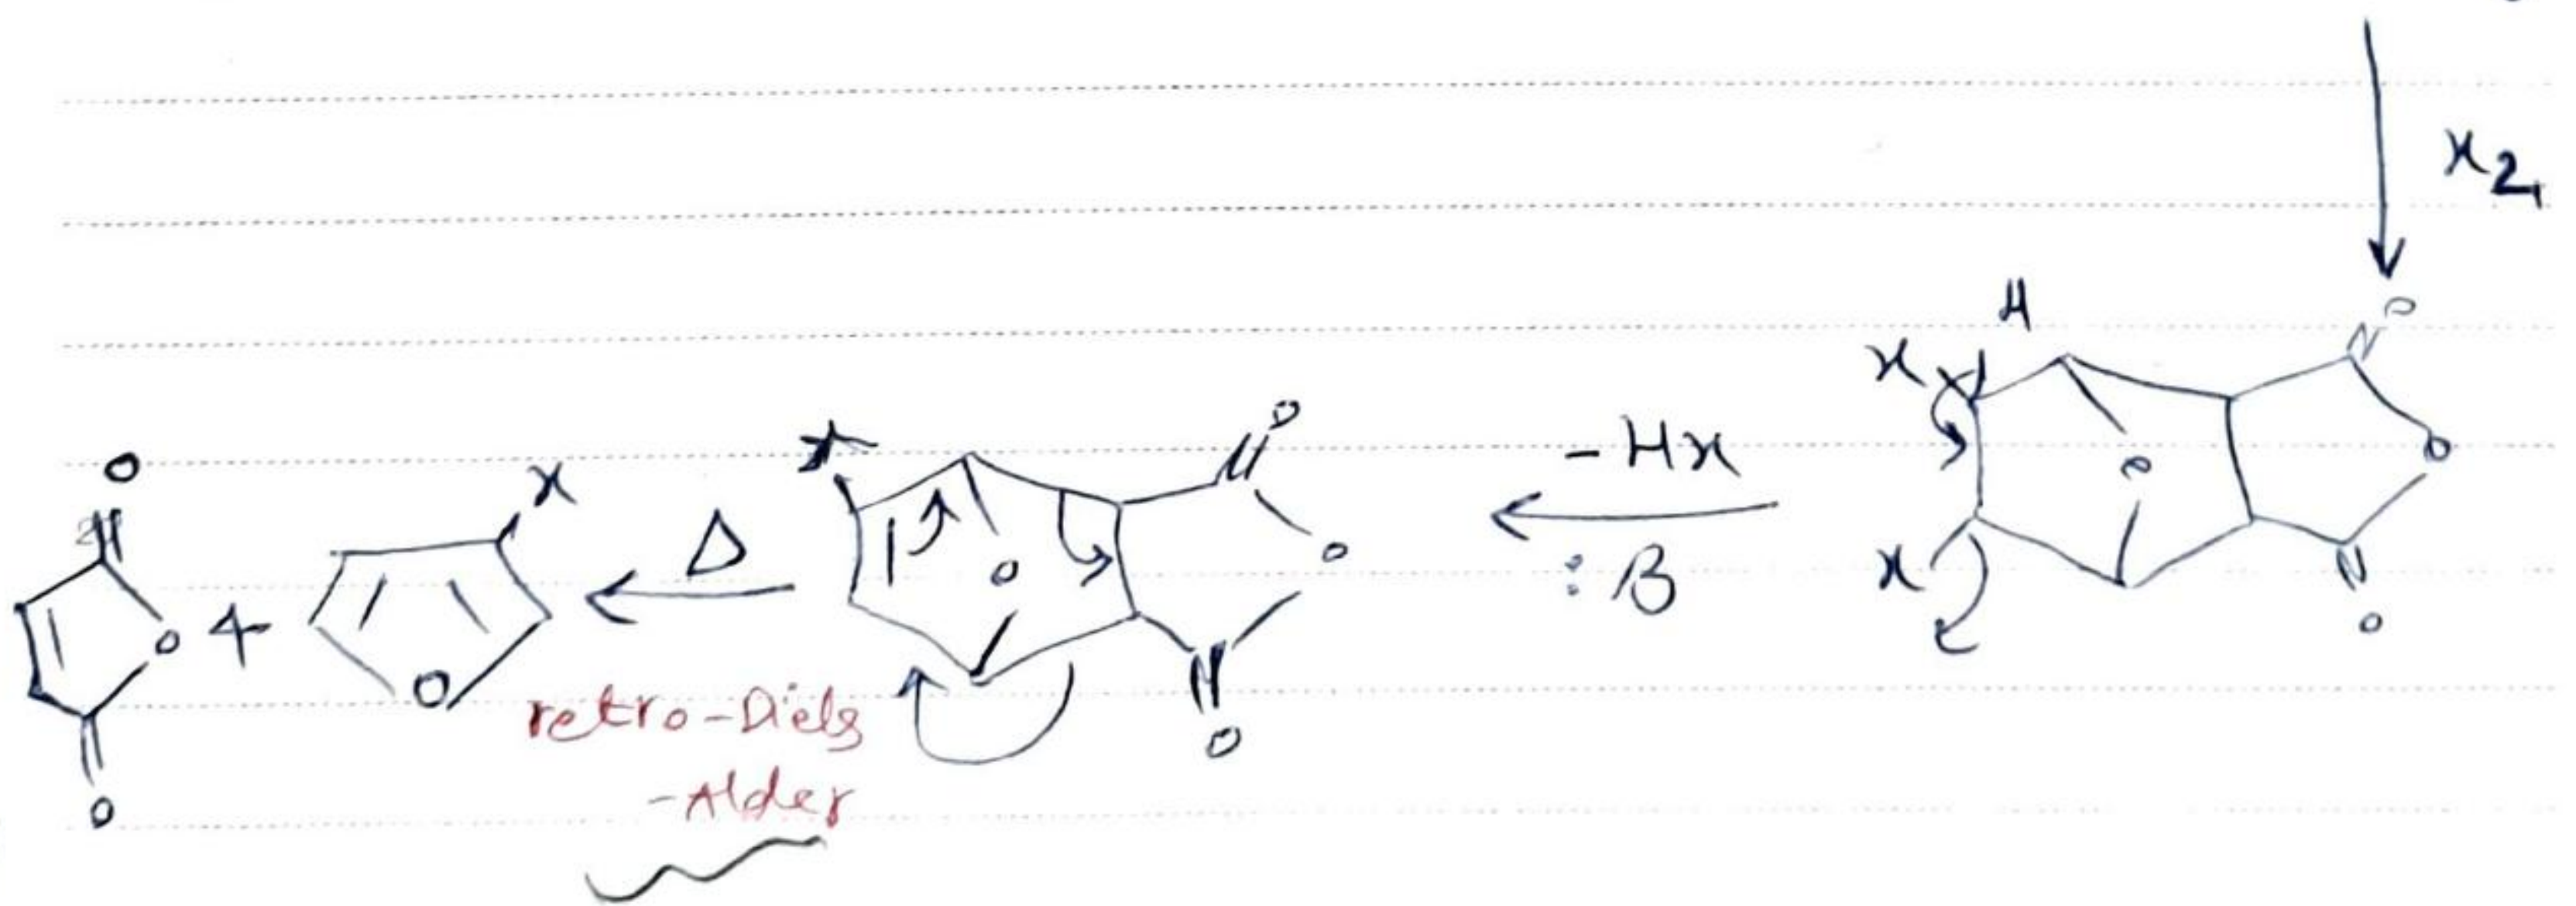 x2,
H
x
O
O
O
x
- Hx
: B
x
O
O
O
O
Δ
retro-Diels
-Alder
x
O
O
O
+
O